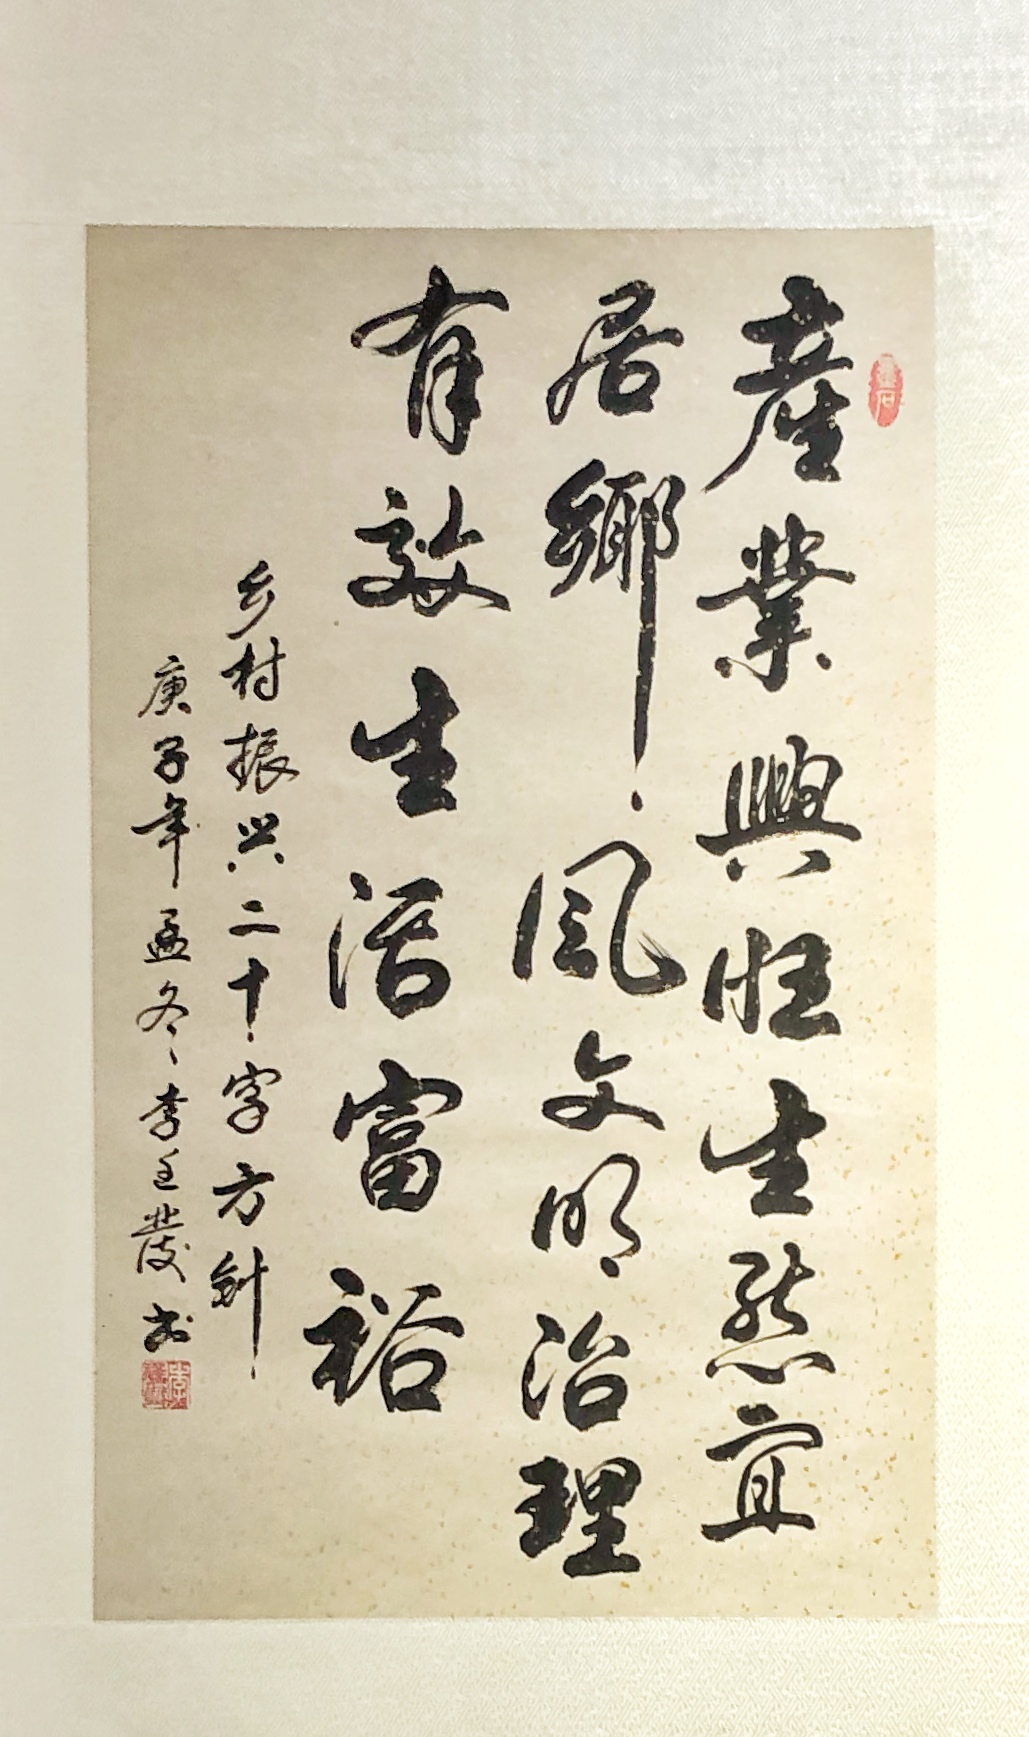 產業興旺生態宜
居鄉風文明治理
有效生活富裕
乡村振兴二十字方针
庚子年孟冬李玉發书